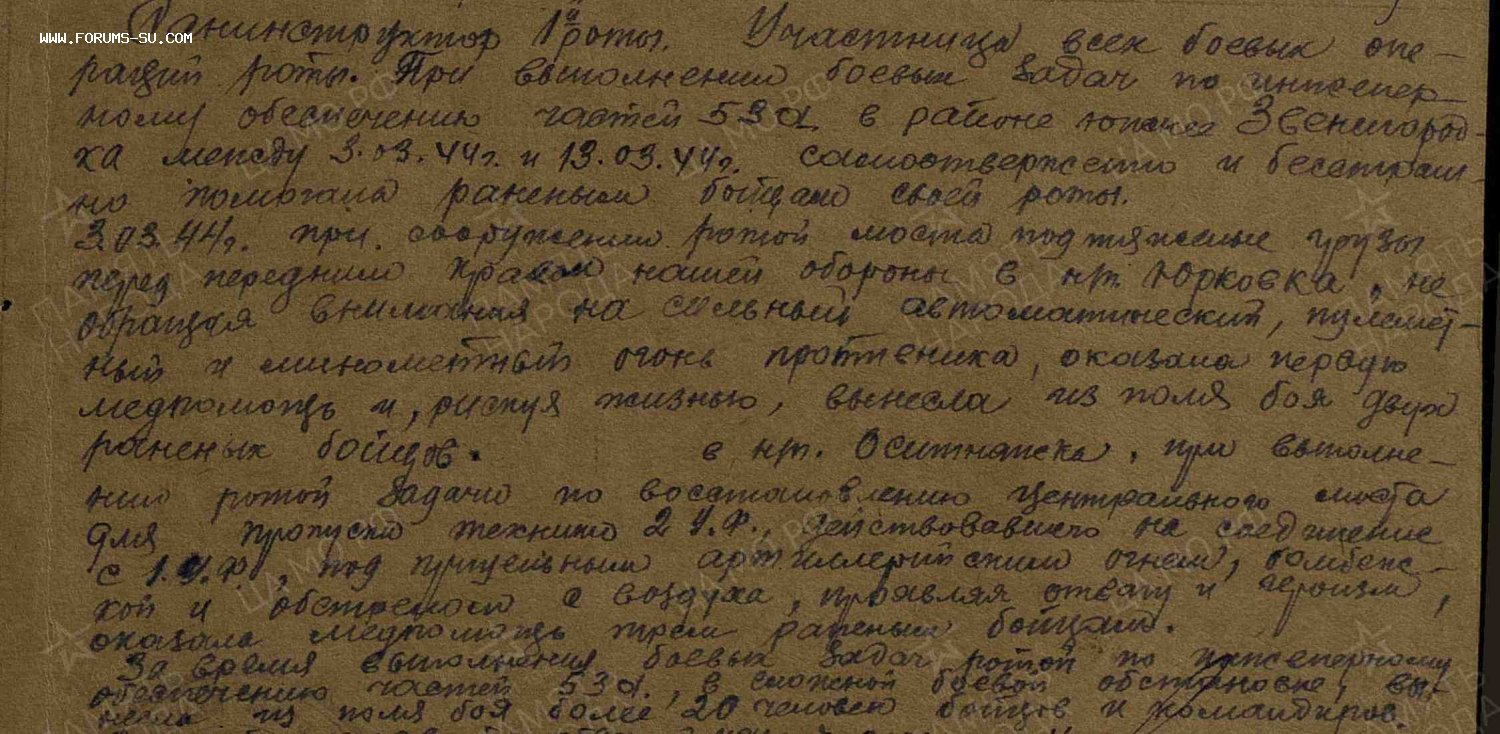 WWW.FORUMS-SU.COM
Санинструктор 1й роты. Участница всех боевых опе-
раций роты. При выполнении боевых задач по инженер-
ному обеспечению частей 53А в районе южнее Звенигород-
ка между 3.03.44г. и 13.03.44г. самоотверженно и бесстраш-
но помогала раненым бойцам своей роты.
3.03.44г. при сооружении ротой моста под тяжелые грузы
перед передним краем нашей обороны в нп. Юрковка, не
обращая внимания на сильный автоматический, пулемет-
ный и минометный огонь противника, оказала первую
медпомощь и, рискуя жизнью, вынесла из поля боя двух
раненых бойцов. в нп. Оситняжка, при выполне-
нии ротой задачи по восстановлению центрального моста
для пропуска техники 2 У.Ф., действовавшего на соединение
с 1.У.Ф., под прицельным артиллерийским огнем, бомбеж-
кой и обстрелом с воздуха, проявляя отвагу и героизм,
оказала медпомощь трем раненым бойцам.
За время выполнения боевых задач ротой по инженерному
обеспечению частей 53А., в сложной боевой обстановке, вы-
несла из поля боя более 20 человек бойцов и командиров.